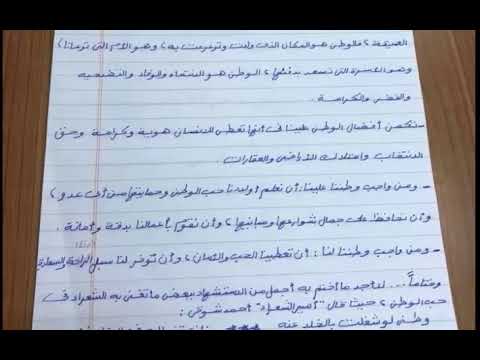 العميقة، فالوطن هو المكان الذى ولدت وترعرعت به، وهو الأم التى ترعانا،
وهو الأسرة التى نسعد بدفئها، الوطن هو الانتماء والوفاء والتضحيه
والفخر والكرامة.
- تكمن أفضال الوطن علينا فى أنها تعطى للإنسان هوية وكرامة وحق
الانتخاب وامتلاك الأراضى والعقارات.
- ومن واجب وطننا علينا: أن نعلم أولادنا حب الوطن وحمايتها من أى عدو،
وأن نحافظ على جمال شوارعها ومبانيها، وأن نقوم بأعمالنا بدقة وأمانة.
- ومن واجب وطننا لنا: أن تعطينا الحب والأمان، وأن توفر لنا سبل الراحة والسعادة
وختاماً... لا أجد ما أختم به أجمل من الاستشهاد ببعض ما تغنى به الشعراء فى
حب الوطن، حيث قال "أمير الشعراء" أحمد شوقى:
وطنى لو شغلت بالخلد عنه